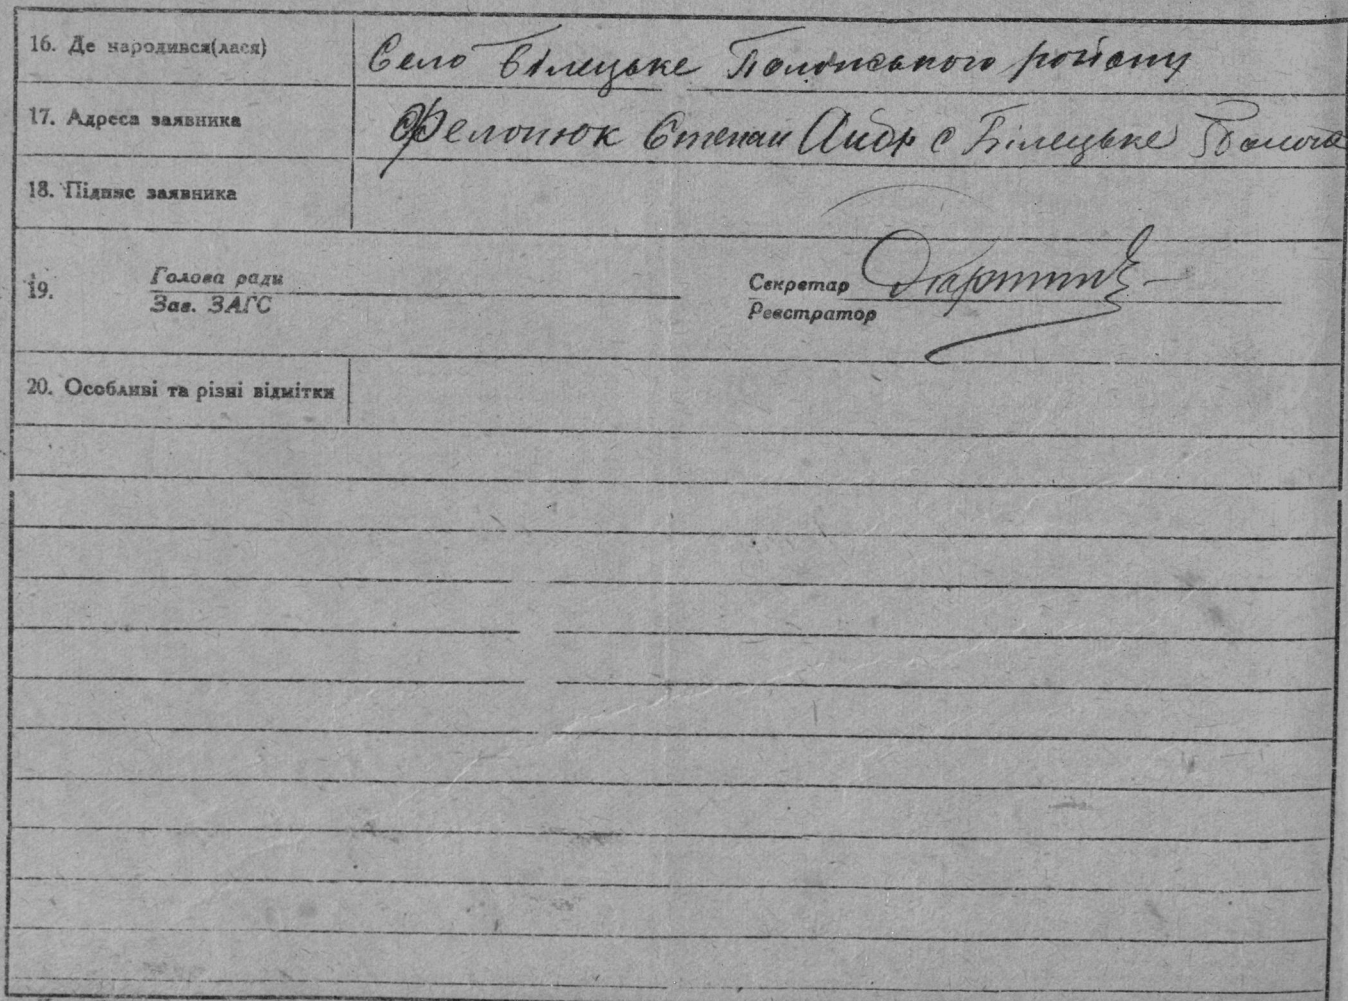 16. Де народився(лася) Село Білецьке Полонського району
17. Адреса заявника Степан Андр с Білецьке
18. Підпис заявника
19. Голова ради Секретар
Зав. ЗАГС Реєстратор
20. Особливі та різні відмітки